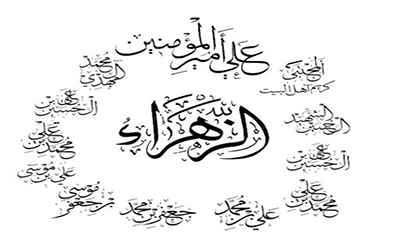 علي أمير المؤمنين
المجتبى
كريم أهل البيت
الشهيد
الحسين
علي بن
الحسين
محمد بن
علي
علي بن محمد
جعفر بن محمد
موسى
بن جعفر
علي بن موسى
محمد بن
علي
محمد
المهدي
الزهراء